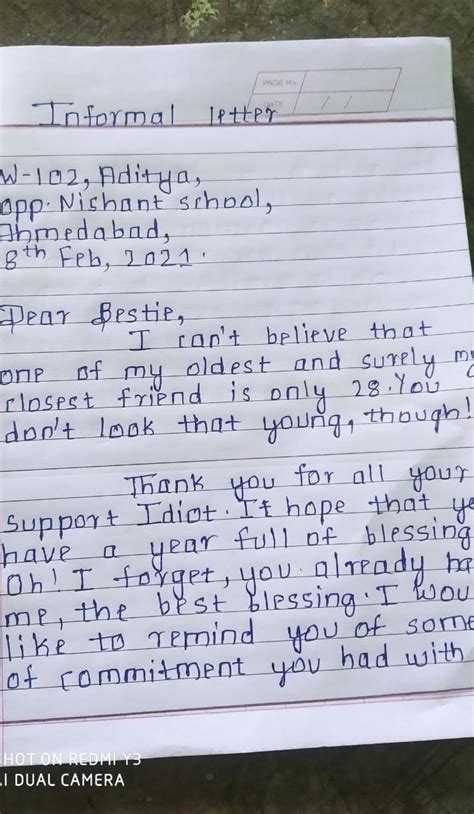 PAGE No.
DATE / /
Informal letter
W-102, Aditya,
opp. Nishant school,
Ahmedabad,
8th Feb, 2021.
Dear Bestie,
I can't believe that
one of my oldest and surely my
closest friend is only 28. You
don't look that young, though!
Thank you for all your
support Idiot. It hope that ye
have a year full of blessing
Oh! I forget, you already ha
me, the best blessing. I wou
like to remind you of some
of commitment you had with
SHOT ON REDMI Y3
AI DUAL CAMERA